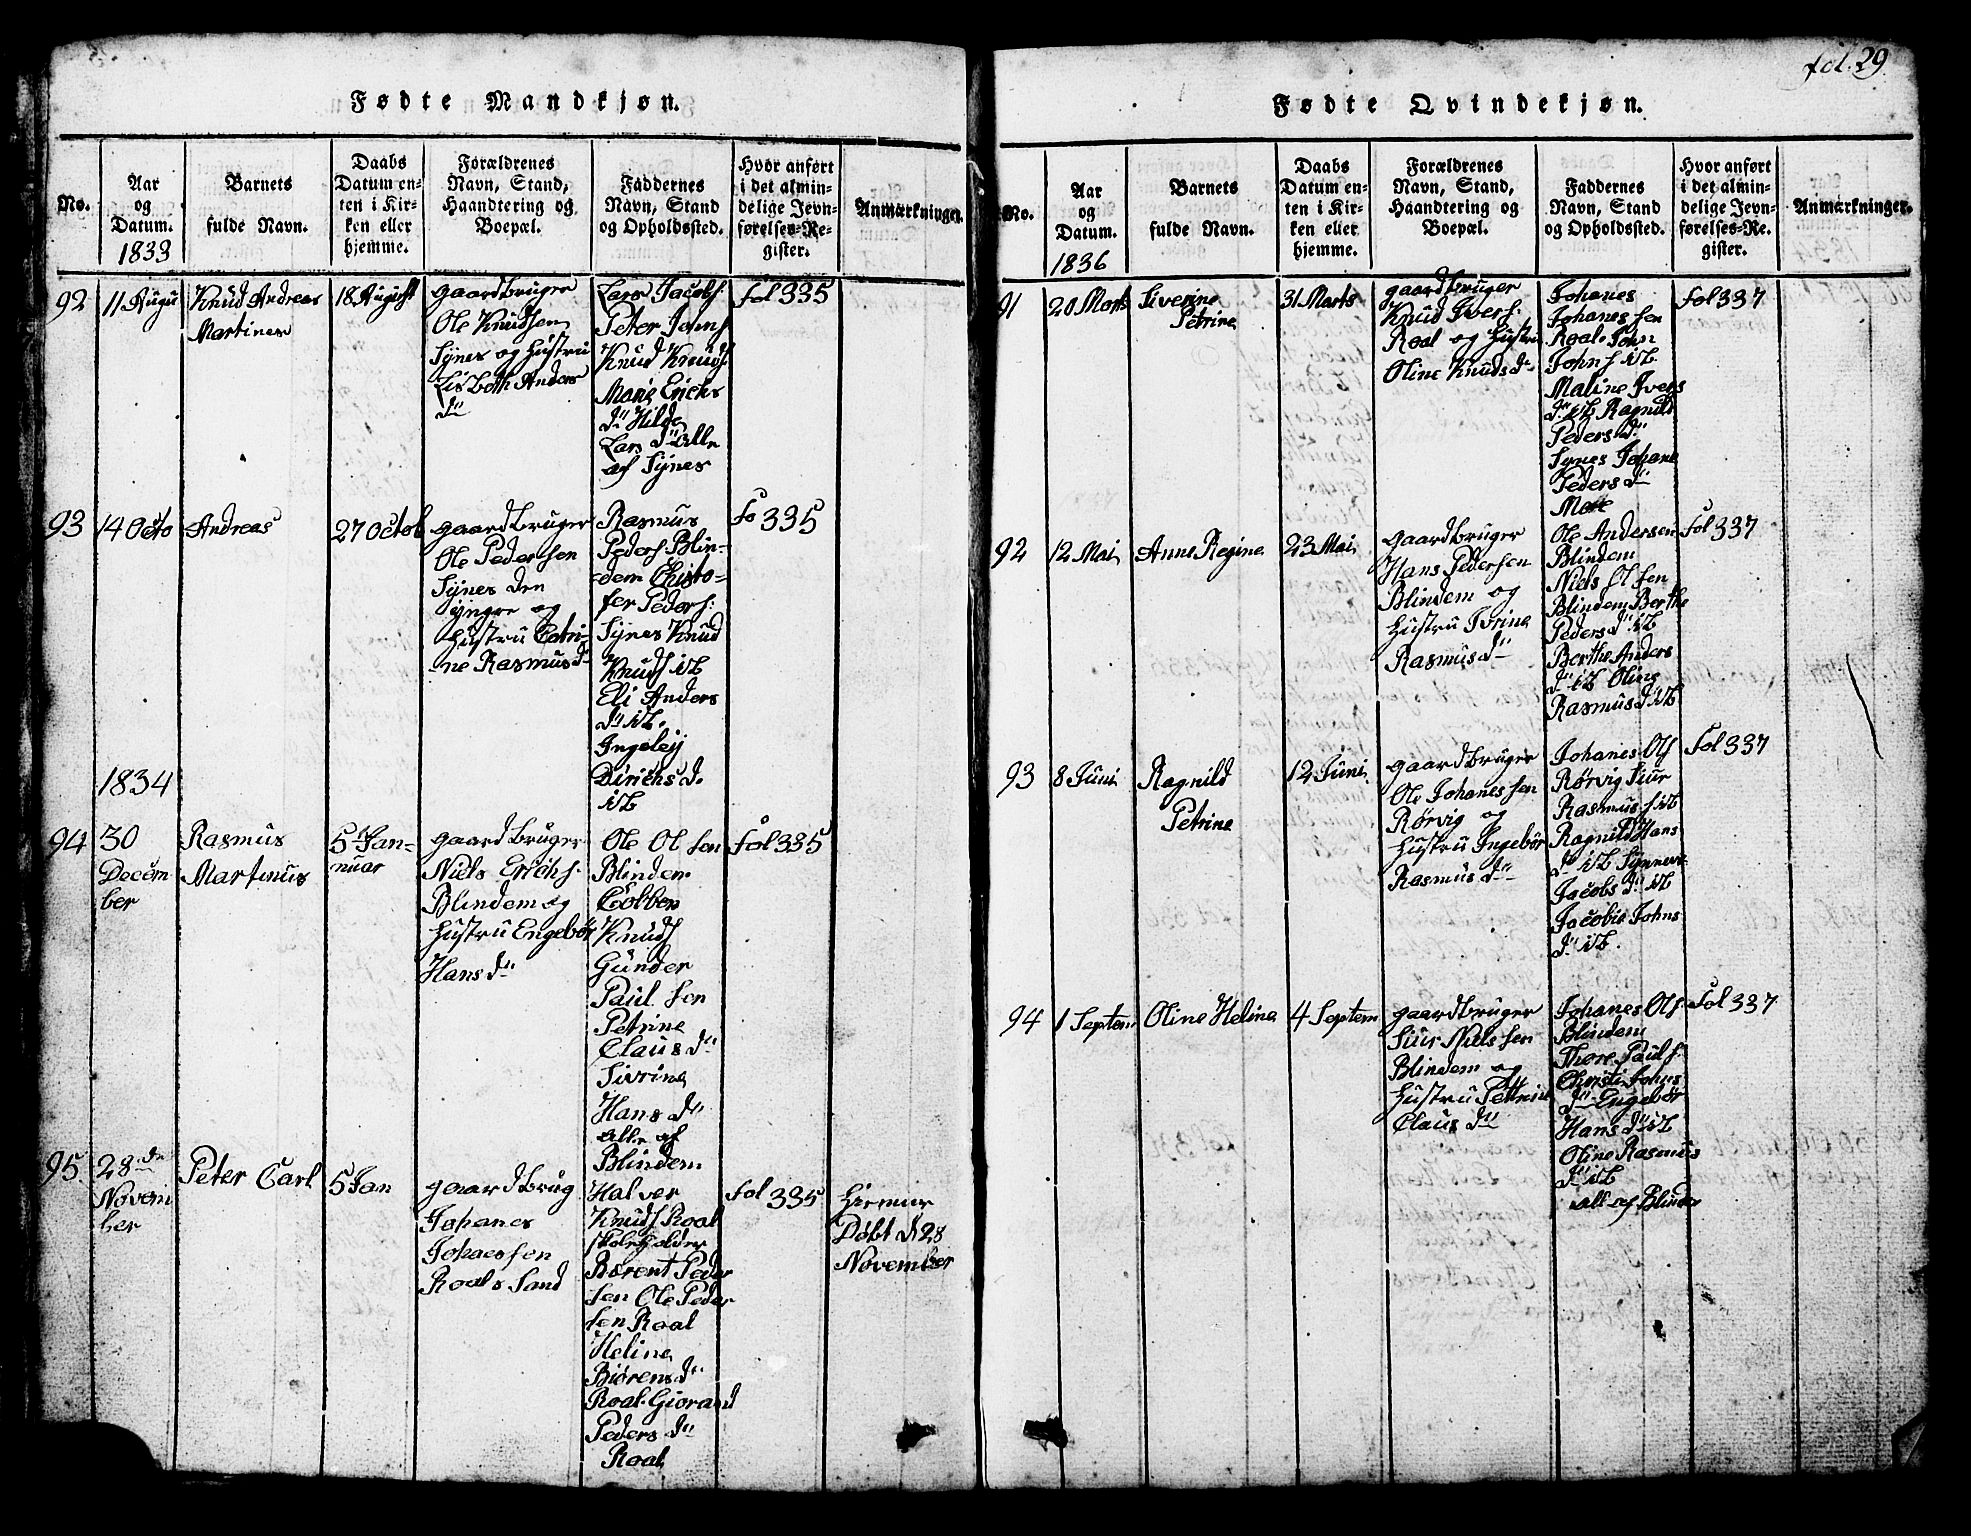 fol. 29.
Fødte Mandkjøn.
No.
Aar
og
Datum.
1833
Barnets
fulde Navn.
Daabs
Datum en-
ten i Kir-
ken eller
hjemme.
Forældrenes
Navn, Stand,
Haandtering og
Boepæl.
Faddernes
Navn, Stand
og Opholdssted.
Hvor anført
i det almin-
delige Jevn-
førelses-Re-
gister.
Anmærkninger.
92
11 Augu
Knud Andreas
Martines
18 August
gaardbruger
Ole Knudsen
Synes og Hustru
Lisbeth Anders
dr
Lars Jacobs
Peter Johns
Knud Knuds
Marie Erichs
dr Hilde
Lars dr alle
af Synes
fol 335
93
14 Octo
Andreas
27 Octob
gaardbruger
Ole Pedersen
Synes den
yngre og
Hustru Catri-
ne Rasmusdr
Rasmus
Peders Blin-
dem Christo-
fer Peders:
Synes Knud
Knuds ib
Eli Anders
dr ib.
Ingeleij
Dirichs d.
ib
fo 335
1834
94
30
Decem
ber
Rasmus
Martinus
5 Jan-
nuar
gaardbruger
Niels Erichs.
Blindem og
Hustru Engebør
Hans dr
Ole Olsen
Blindem
Colben
Knuds
Gunder
Paulsen
Petrine
Claus dr
Sivrine
Hans dr
alle af
Blindem
fol 335
95
28de
Novem
ber
Peter Carl
5 Jan
gaardbrug
Johanes
Johaessen
Roals Sand
Halver
Knuds Roal
skoleholder
Bærent Peder
sen Ole Peder
sen Roal
Heline
Biørens dr
Roal. Giorand
Peders dr
Roal
fol 335
Hiemmr
Døbt d 28
November
Fødte Qvindekjøn.
No.
Aar
og
Datum.
1836
Barnets
fulde Navn.
Daabs
Datum en-
ten i Kir-
ken eller
hjemme.
Forældrenes
Navn, Stand,
Haandtering og
Boepæl.
Faddernes
Navn, Stand
og Opholdssted.
Hvor anført
i det almin-
delige Jevn-
førelses-Re-
gister.
Anmærkninger.
91
20 Marts
Siverine
Petrine
31 Marts
gaardbruger
Knud Ivers.
Roal og Hustru
Oline Knudsdr
Johanes
Johanessen
Roal. John
Johns ib
Maline Ivers
dr ib Ragnild
Peders dr
Synes Johane
Peders dr
Moe
fol 337
92
12 Mai
Anne Regine
23 Mai
gaardbruger
Hans Pedersen
Blindem og
Hustru Ivrine
Rasmusdr
Ole Andersen
Blindem
Niels Olsen
Blindem Berthe
Peders dr ib
Berthe Anders
dr ib Oline
Rasmus d ib
fol 337
93
8 Juni
Ragnild
Petrine
12 Juni
gaardbruger
Ole Johanessen
Rørvig og
Hustru Ingebør
Rasmus dr
Johanes Ols
Rørvig Siur
Rasmus s ib
Ragnild Hans
dr ib Synneve
Jacobs dr ib
Jacobie Johns
dr ib.
fol 337
94
1 Septem
Oline Heline
4 Septem
gaardbruger
Siur Nielssen
Blindem og
Hustru Pettrine
Claus dr
Johanes Ols.
Blindem
Thore Pauls.
Christi Johns
dr Engebør
Hans dr ib
Oline Rasmus
dr ib
all af Blindem
fol 337